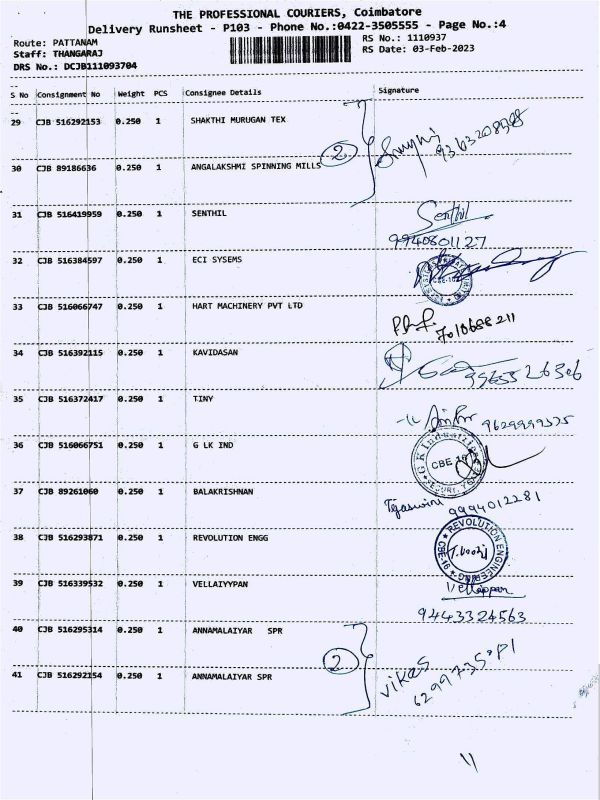 THE PROFESSIONAL COURIERS, Coimbatore
Delivery Runsheet - P103 - Phone No.:0422-3505555 - Page No.:4
Route: PATTANAM
Staff: THANGARAJ
DRS No.: DCJB111093704
RS No.: 1110937
RS Date: 03-Feb-2023
S No Consignment No Weight PCS Consignee Details Signature
29 CJB 516292153 0.250 1 SHAKTHI MURUGAN TEX
2
30 CJB 89186636 0.250 1 ANGALAKSHMI SPINNING MILLS
31 CJB 516419959 0.250 1 SENTHIL Senthil
9940801127
32 CJB 516384597 0.250 1 ECI SYSEMS
33 CJB 516066747 0.250 1 HART MACHINERY PVT LTD
7010688211
34 CJB 516392115 0.250 1 KAVIDASAN
35 CJB 516372417 0.250 1 TINY
36 CJB 516066751 0.250 1 G LK IND
CBE 16
37 CJB 89261060 0.250 1 BALAKRISHNAN Tejaswini 9994012281
38 CJB 516293871 0.250 1 REVOLUTION ENGG
REVOLUTION ENGINEERING CBE-16
39 CJB 516339532 0.250 1 VELLAIYYPAN Vellaippan
9443324563
40 CJB 516295314 0.250 1 ANNAMALAIYAR SPR
2 vikas
41 CJB 516292154 0.250 1 ANNAMALAIYAR SPR
11